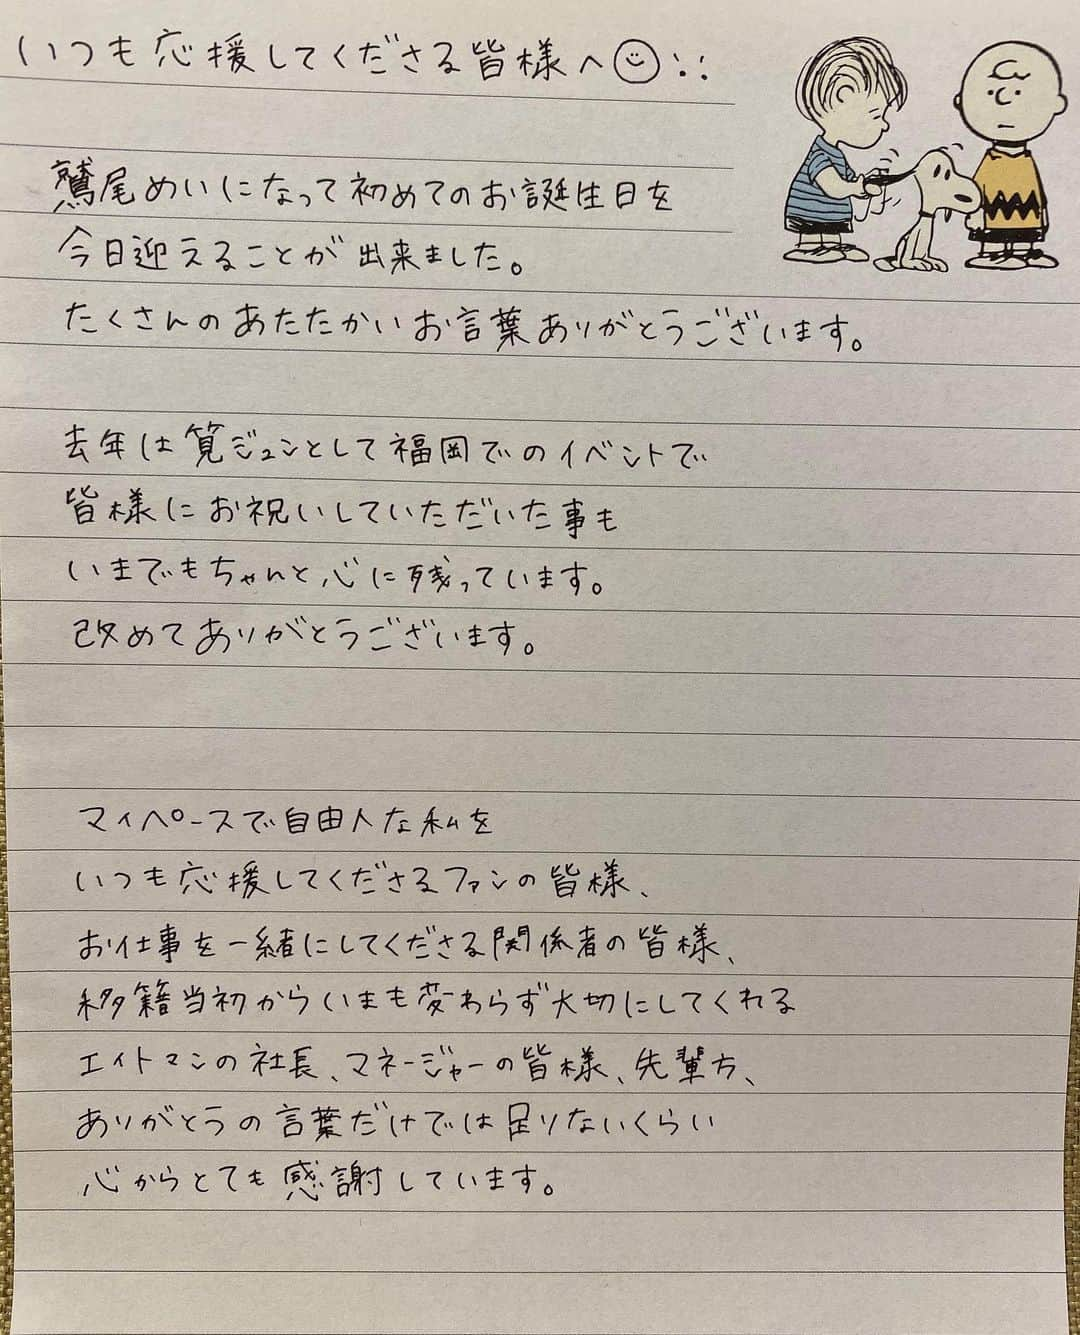 いつも応援してくださる皆様へ
鷲尾めいになって初めてのお誕生日を
今日迎えることが出来ました。
たくさんのあたたかいお言葉ありがとうございます。
去年は筧ジュンとして福岡でのイベントで
皆様にお祝いしていただいた事も
いまでもちゃんと心に残っています。
改めてありがとうございます。
マイペースで自由人な私を
いつも応援してくださるファンの皆様、
お仕事を一緒にしてくださる関係者の皆様、
移籍当初からいまも変わらず大切にしてくれる
エイトマンの社長、マネージャーの皆様、先輩方、
ありがとうの言葉だけでは足りないくらい
心からとても感謝しています。